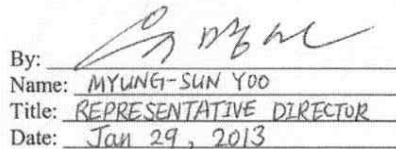 By:
Name: MYUNG-SUN YOO
Title: REPRESENTATIVE DIRECTOR
Date: Jan 29, 2013